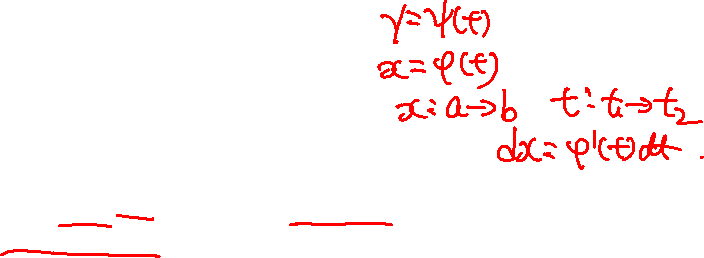 y=ψ(t)
x=φ(t)
x:a→b t:t₁→t₂
dx=φ'(t)dt.